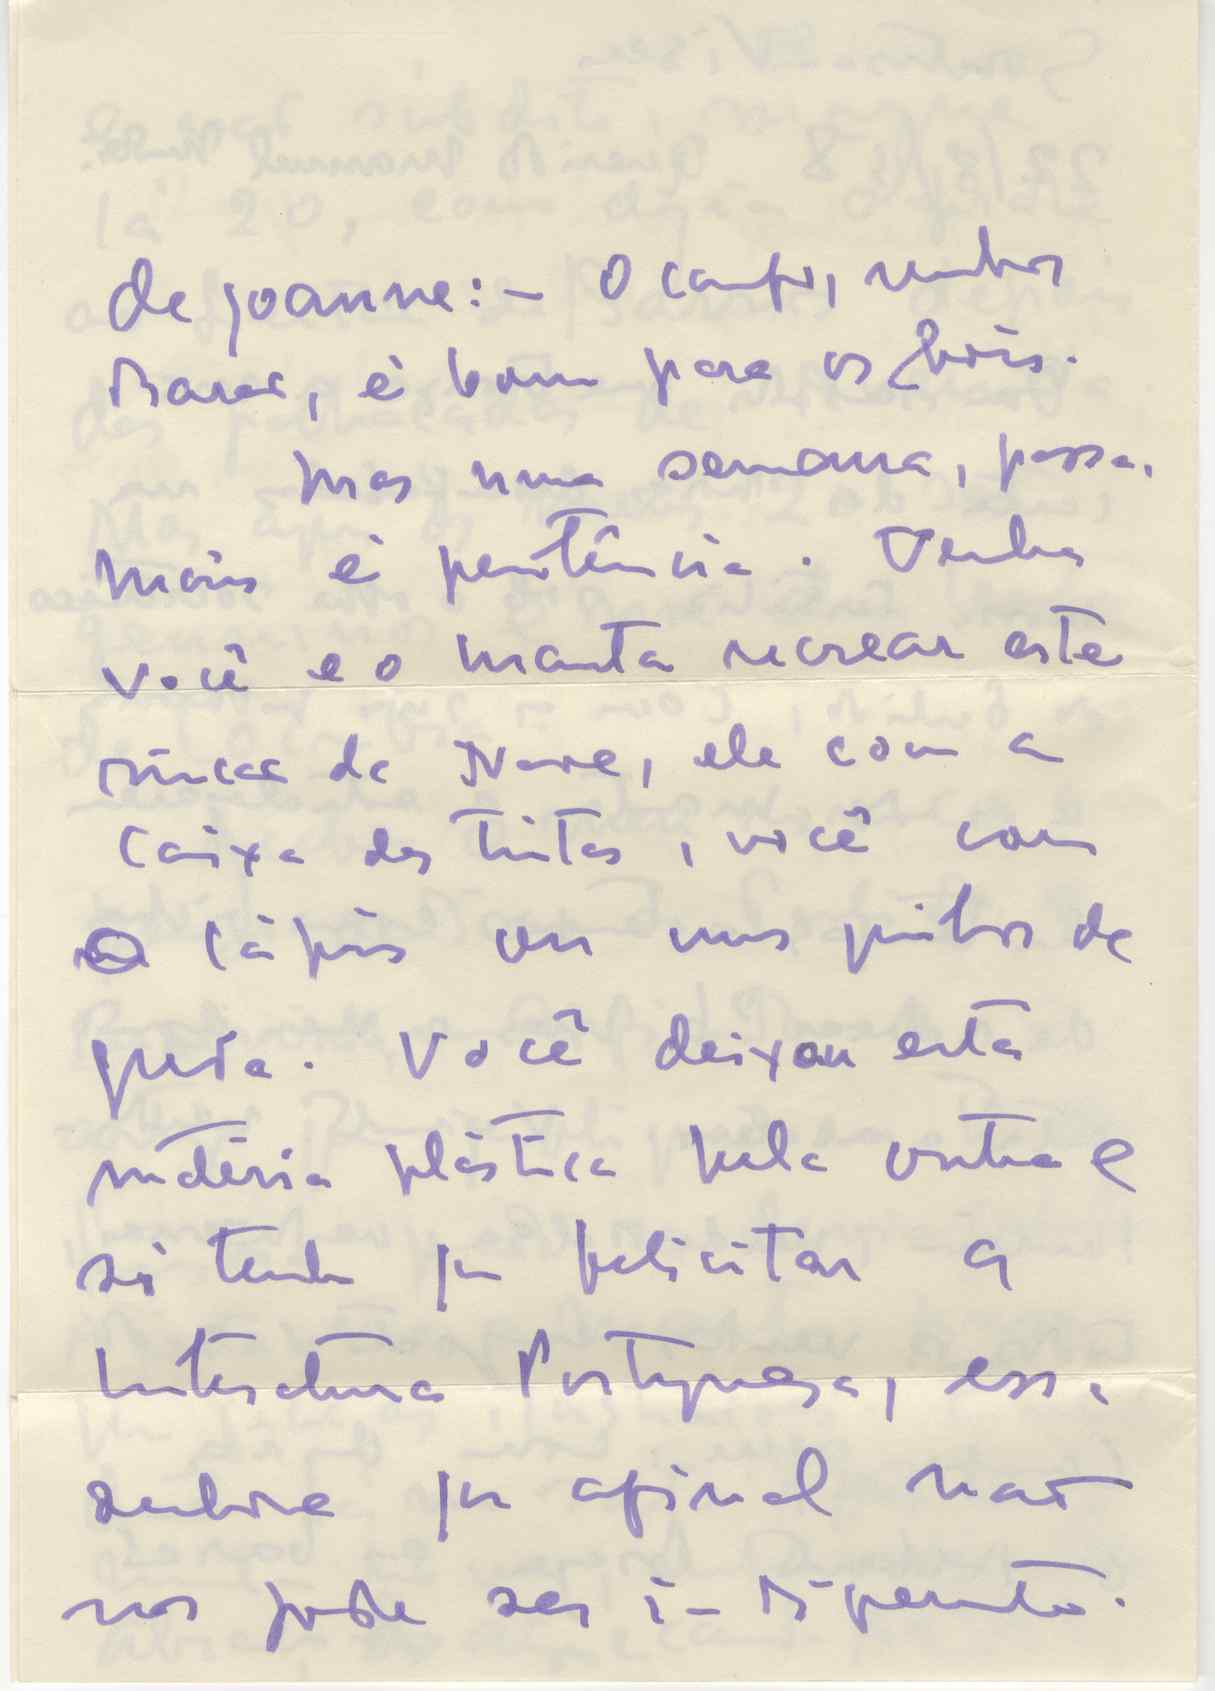 de Joanne:- O campo, senhor
Barão, é bom para os bois.
Mas uma semana, passa.
Mais é penitência. Venha
você e o Manta recrear este
rincão da Nave, ele com a
caixa das tintas, você com
o lápis ou uns pitões de
greda. Você deixou esta
matéria plástica pela outra e
só tenho que felicitar a
Literatura Portuguesa, essa
senhora que afinal não
nos pode ser indiferente.